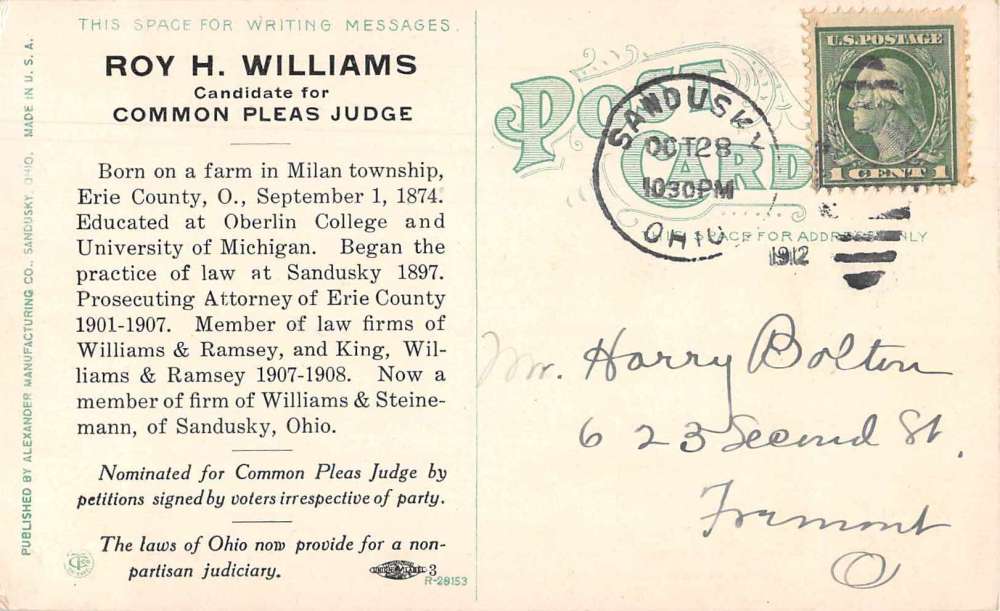 THIS SPACE FOR WRITING MESSAGES.
ROY H. WILLIAMS
Candidate for
COMMON PLEAS JUDGE
Born on a farm in Milan township,
Erie County, O., September 1, 1874.
Educated at Oberlin College and
University of Michigan. Began the
practice of law at Sandusky 1897.
Prosecuting Attorney of Erie County
1901-1907. Member of law firms of
Williams & Ramsey, and King, Wil-
liams & Ramsey 1907-1908. Now a
member of firm of Williams & Steine-
mann, of Sandusky, Ohio.
Nominated for Common Pleas Judge by
petitions signed by voters irrespective of party.
The laws of Ohio now provide for a non-
partisan judiciary.
3
R-28153
PUBLISHED BY ALEXANDER MANUFACTURING CO., SANDUSKY, OHIO. MADE IN U. S. A.
POST
CARD
THIS SPACE FOR ADDRESS ONLY
SANDUSKY
OCT 28
1030 PM
OHIO
1912
U.S. POSTAGE
1 CENT 1
Mr. Harry Bolton
623 Second St.
Fremont
O